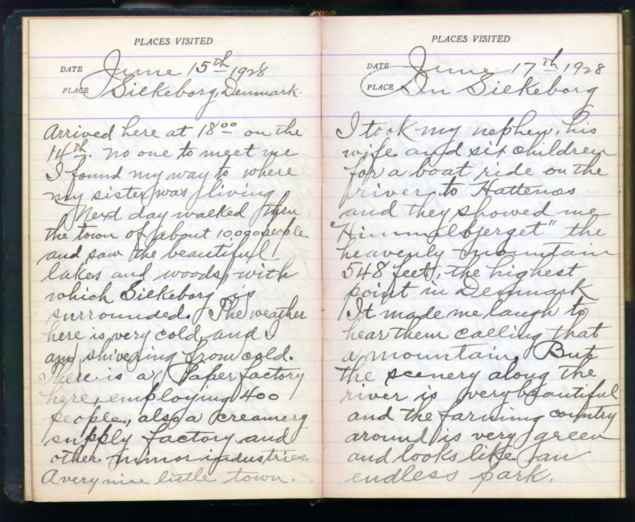 PLACES VISITED
DATE June 15th 1928
PLACE Silkeborg, Denmark.
Arrived here at 18 00 on the
14th. no one to meet me
I found my way to where
my sister was living
Next day walked thru
the town of about 10000 people
and saw the beautiful
lakes and woods with
which Silkeborg is
surrounded. The weather
here is very cold and I
am shivering from cold.
There is a Paper factory
here, employing 400
people, also a creamery
supply factory and
other minor industries.
A very nice little town.
PLACES VISITED
DATE June 17th 1928
PLACE In Silkeborg
I took my nephew, his
wife and six children
for a boat ride on the
river to Hattenæs
and they showed me
"Himmelbjerget" the
heavenly mountain
548 feet, the highest
point in Denmark
It made me laugh to
hear them calling that
a mountain. But
the scenery along the
river is very beautiful
and the farming country
around is very green
and looks like an
endless park.